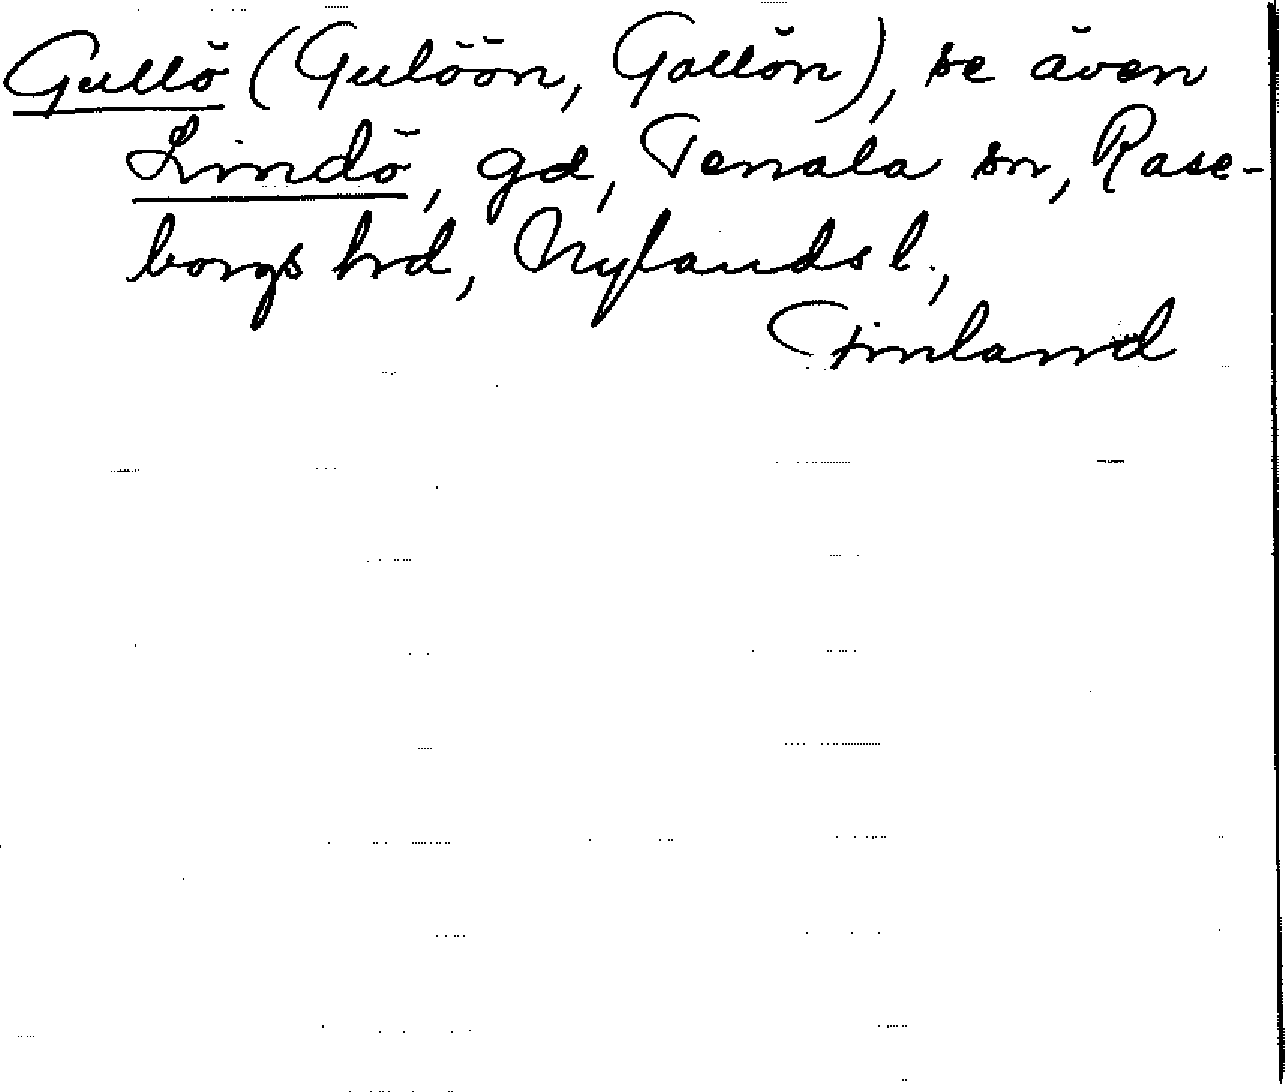 Gullö (Gulöön, Gollön), se även
Lindö, gd, Tenala sn, Rase-
borgs hrd, Nylands l.,
Finland